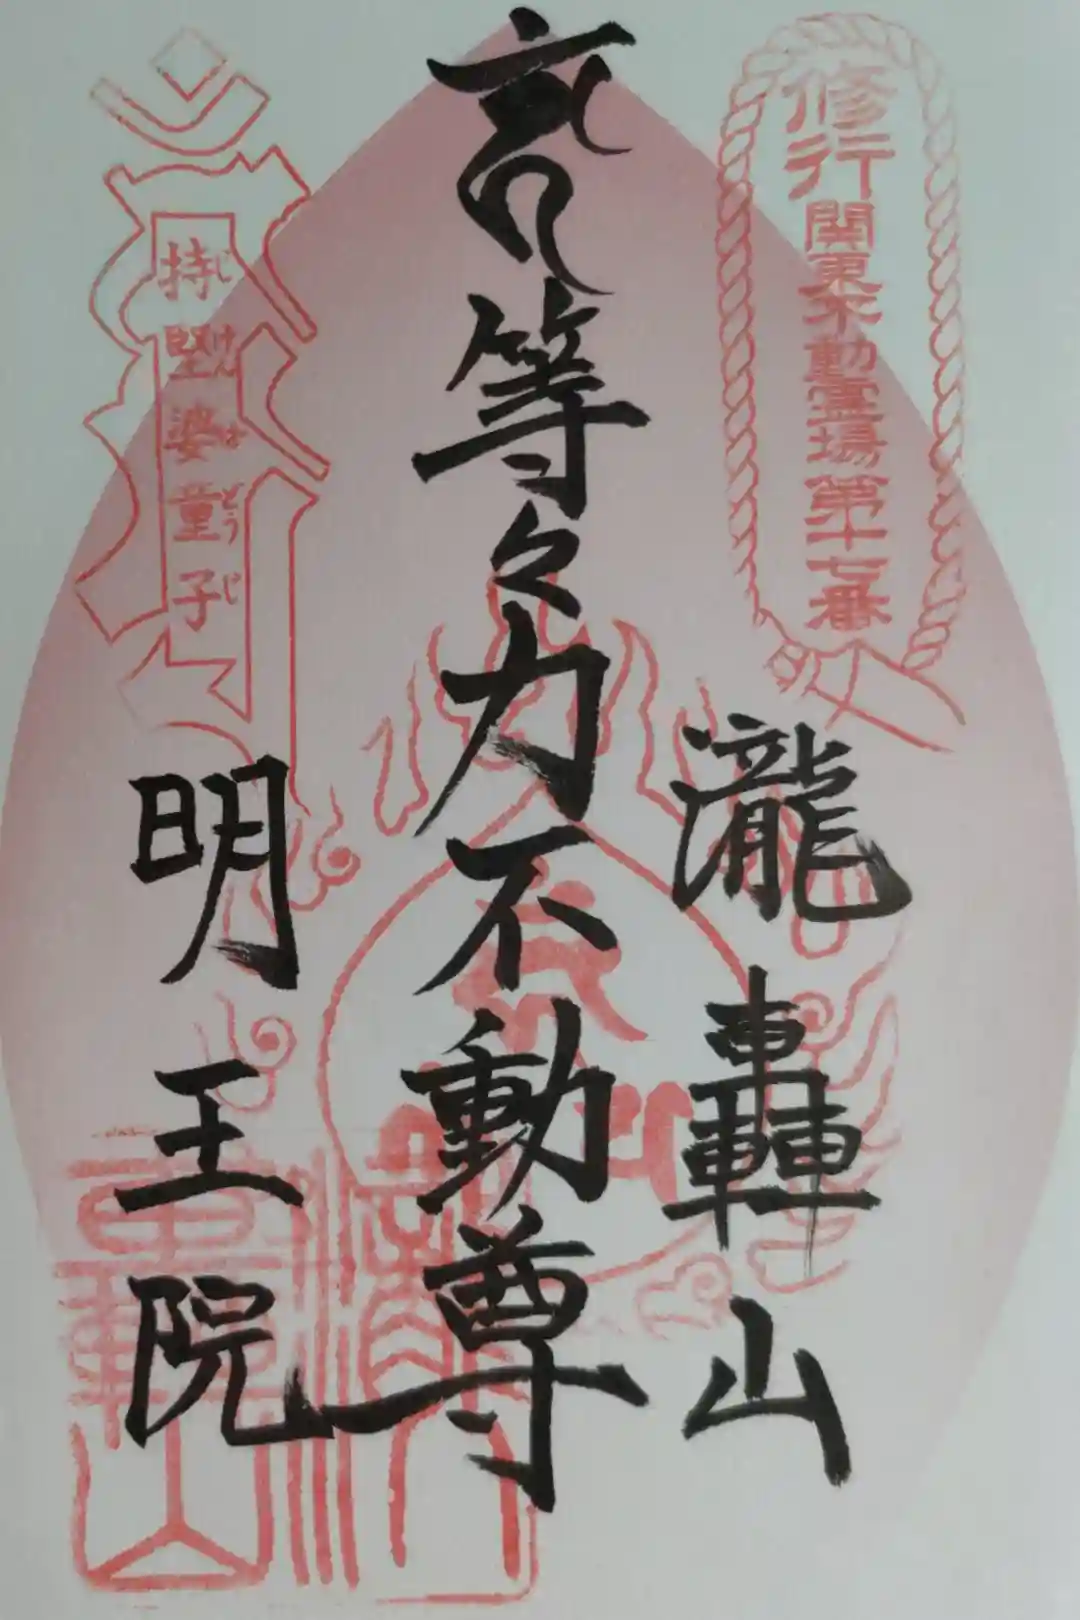 修行
関東不動霊場第十七番
瀧轟山
等々力不動尊
持堅婆童子
じ けんばどうじ
明王院